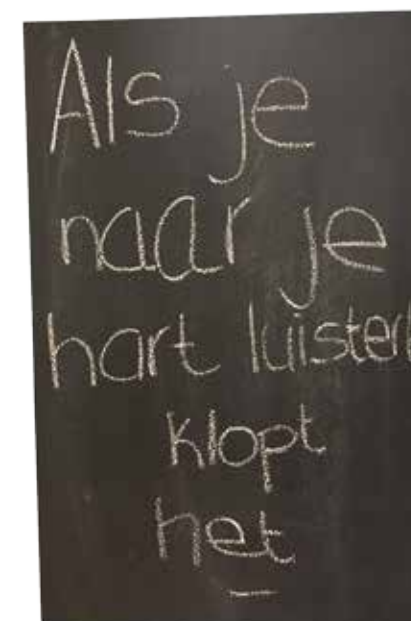 Als je
naar je
hart luistert
klopt
het